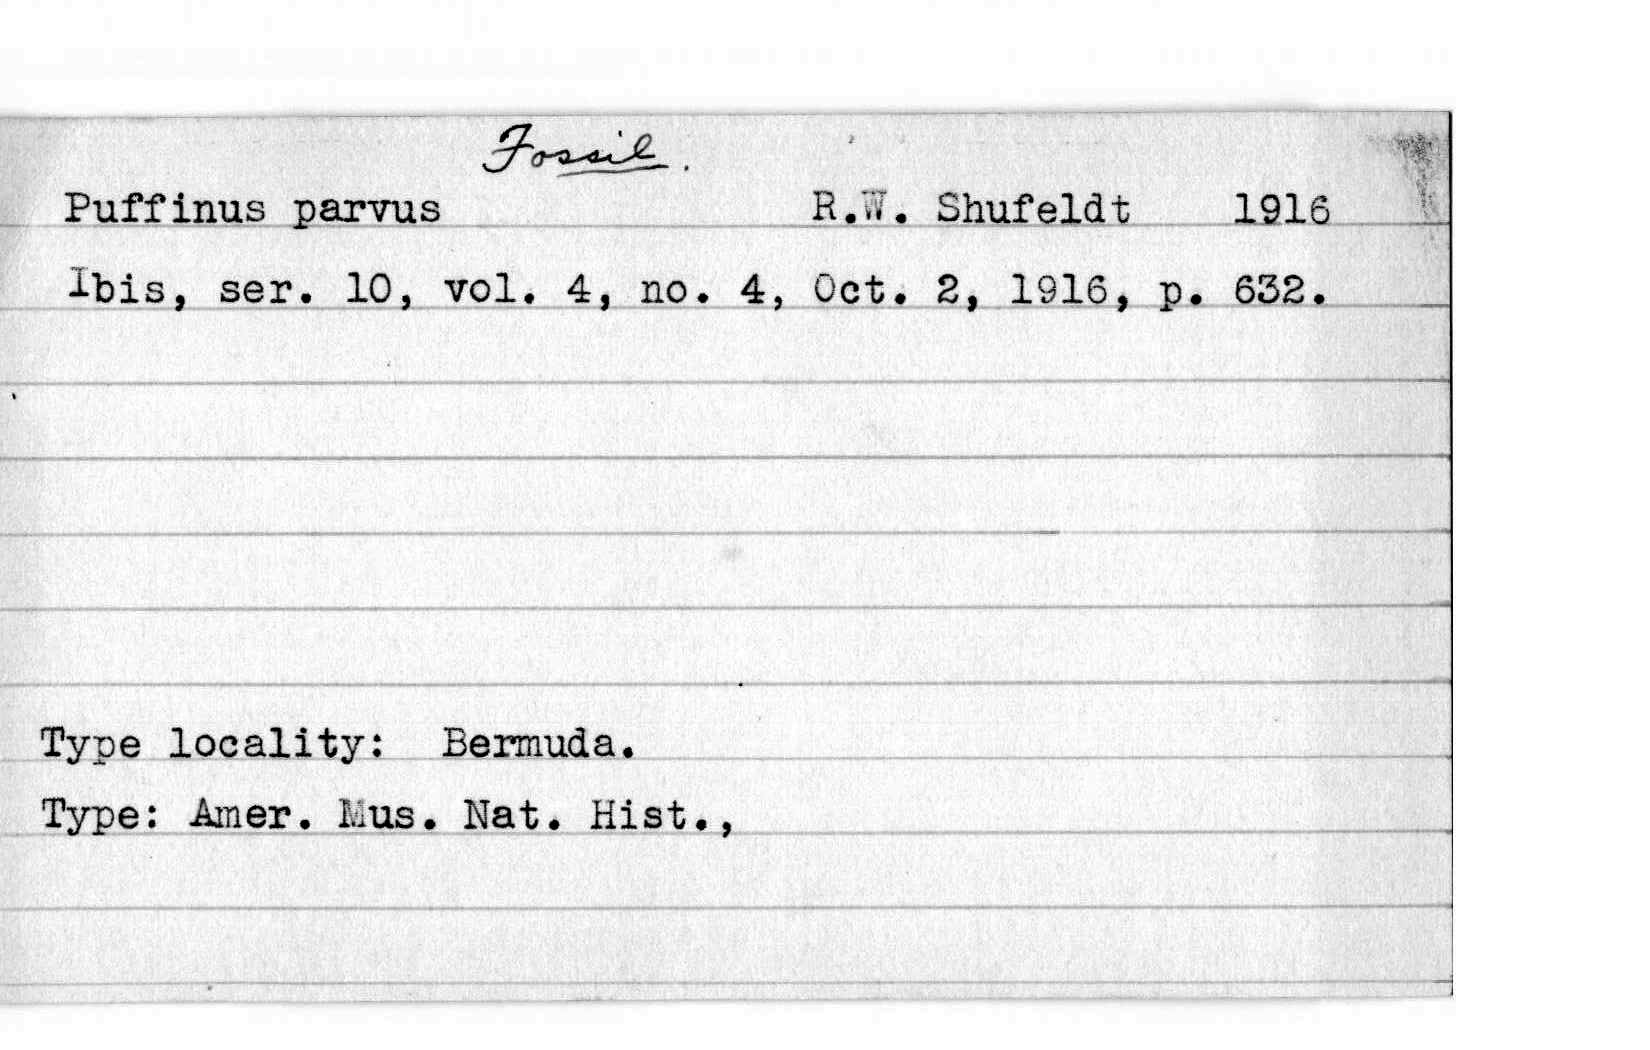 Fossil.
Puffinus parvus R.W. Shufeldt 1916
Ibis, ser. 10, vol. 4, no. 4, Oct. 2, 1916, p. 632.
Type locality: Bermuda.
Type: Amer. Mus. Nat. Hist.,